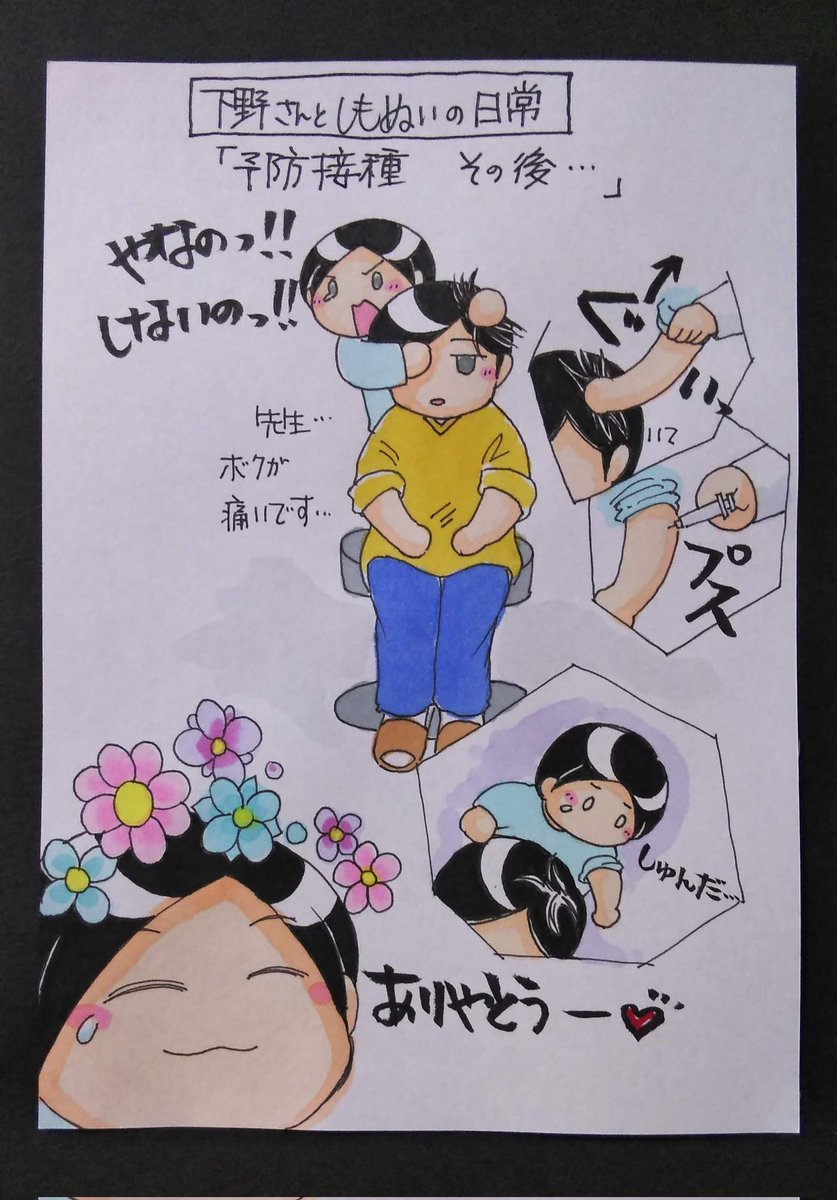 下野さんとしもぬいの日常
「予防接種　その後…」
やなのっ!!
しないのっ!!
先生…
ボクが
痛いです…
ぐいっ
いて
プス
しゅんだ…
ありやとうー